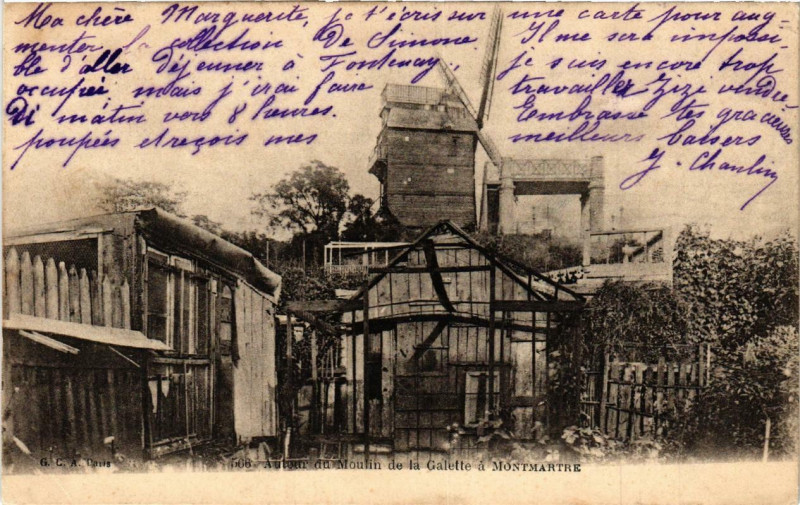 Ma chère Marguerite, je t'écris sur une carte pour aug-
menter la collection De Simone. Il me sera impossi-
ble d'aller Déjeuner à Fontenay, je suis encore trop
occupée mais j'irai faire travailler Zizé vendre-
Di matin vers 8 heures. Embrasse tes gracieuses
poupées et reçois mes meilleurs baisers
G. Chaulin
G. C. A. Paris
506 Autour du Moulin de la Galette à MONTMARTRE